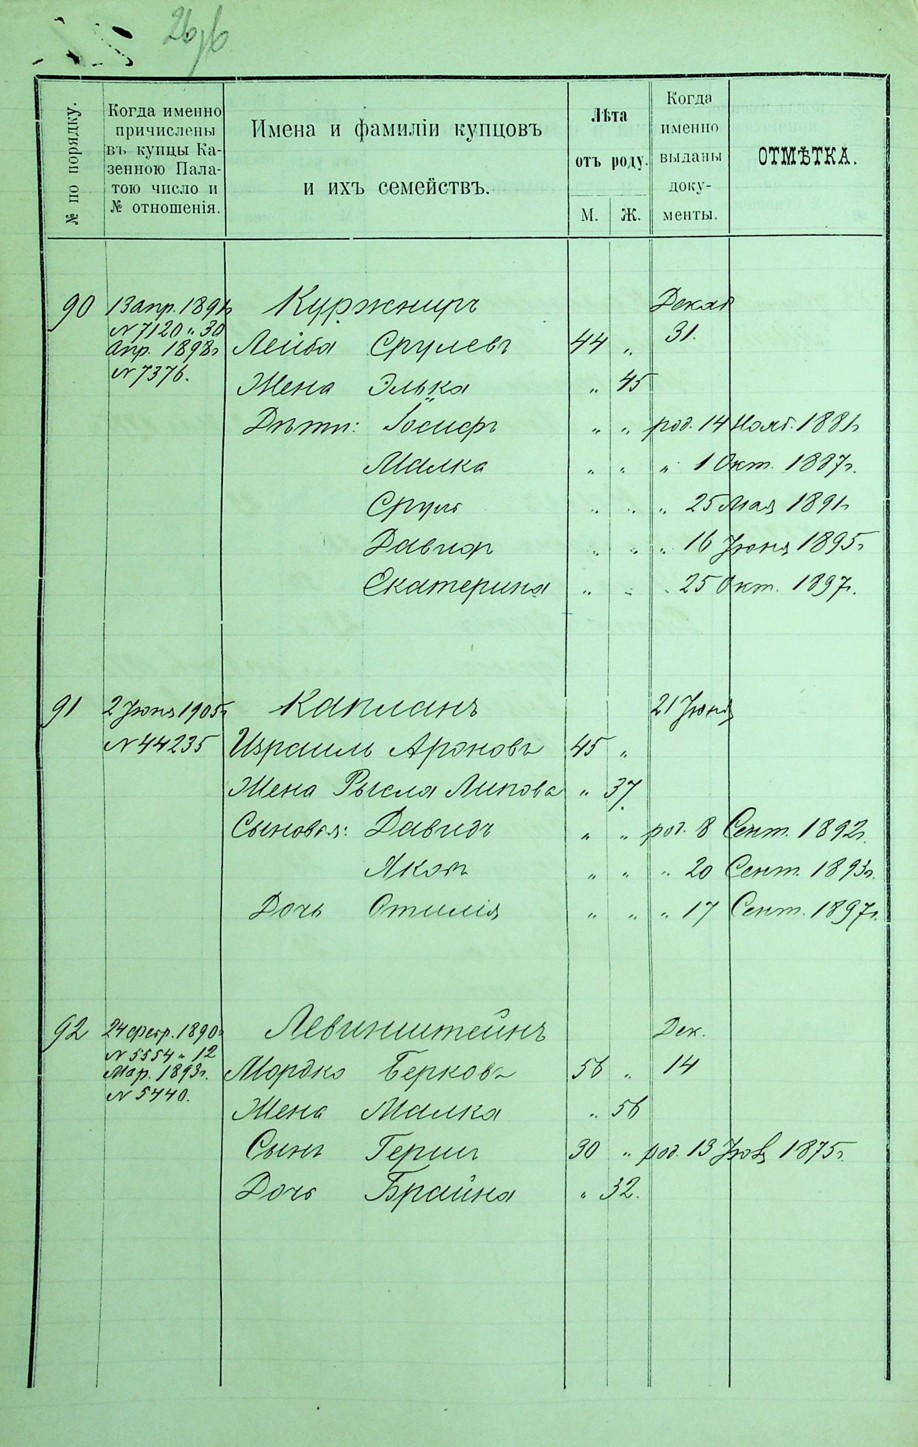 № по порядку.
Когда именно причислены въ купцы Ка-
зенною Пала-
тою число и
№ отношенія.
Имена и фамиліи купцовъ
и ихъ семействъ.
Лѣта
отъ роду.
М. Ж.
Когда
именно
выданы
доку-
менты.
ОТМѢТКА.
90 13 апр. 1891г. Куржниръ Декаб
№ 7120 " 30 31.
апр. 1898г. Лейба Срулевъ 44 "
№ 7376.
Жена Элька " 45
Дѣти: Іосифъ " " род. 14 Нояб. 1881г.
Малка " " " 1 Окт. 1887г.
Сруль " " " 25 Мая 1891г.
Давидъ " " " 16 Іюня 1895г.
Екатерина " " " 25 Окт. 1897г.
91 2 Іюня 1905г. Капланъ 21 Іюня
№ 44235 Израиль Ароновъ 45 "
Жена Рысля Липова " 37.
Сыновья: Давидъ " " род. 8 Сент. 1892г.
Яковъ " " " 20 Сент. 1893г.
Дочь Отилія " " " 17 Сент. 1897г.
92 24 февр. 1890г. Левинштейнъ Дек.
№ 5554 " 12
Мар. 1893г. Мордко Берковъ 56 " 14
№ 5440.
Жена Малка " 56
Сынъ Гершъ 30 " род. 13 1875г.
Дочь Брайна " 32.